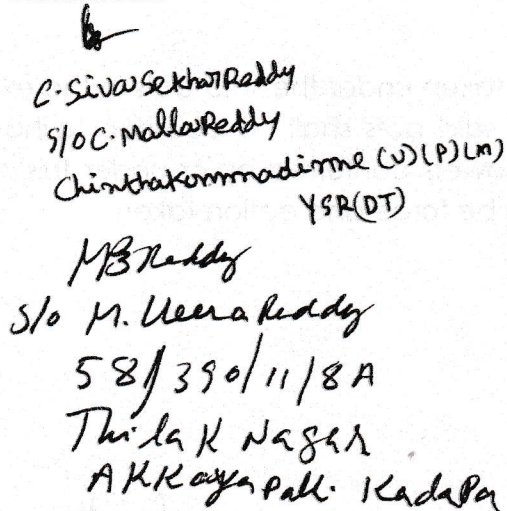 C. Siva Sekhar Reddy
S/o C. Malla Reddy
Chinthakommadinne (V) (P) (M)
YSR (DT)
MB Reddy
S/o M. Veera Reddy
58/390/11/8A
Thilak Nagar
AKKayapalli. Kadapa